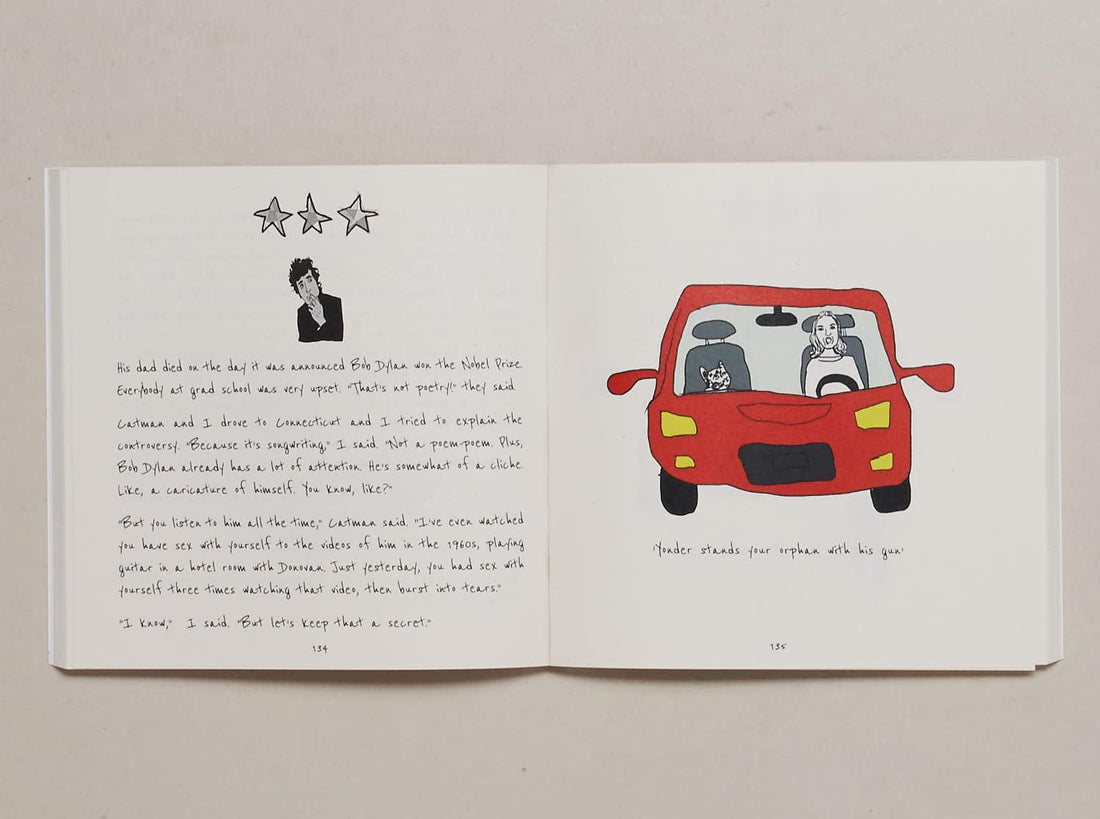 His dad died on the day it was announced Bob Dylan won the Nobel Prize.
Everybody at grad school was very upset. "That's not poetry!" they said.
Catman and I drove to Connecticut and I tried to explain the
controversy. "Because it's songwriting," I said. "Not a poem-poem. Plus,
Bob Dylan already has a lot of attention. He's somewhat of a cliche.
Like, a caricature of himself. You know, like?"
"But you listen to him all the time," Catman said. "I've even watched
you have sex with yourself to the videos of him in the 1960s, playing
guitar in a hotel room with Donovan. Just yesterday, you had sex with
yourself three times watching that video, then burst into tears."
"I know," I said. "But let's keep that a secret."
134
'Yonder stands your orphan with his gun'
135